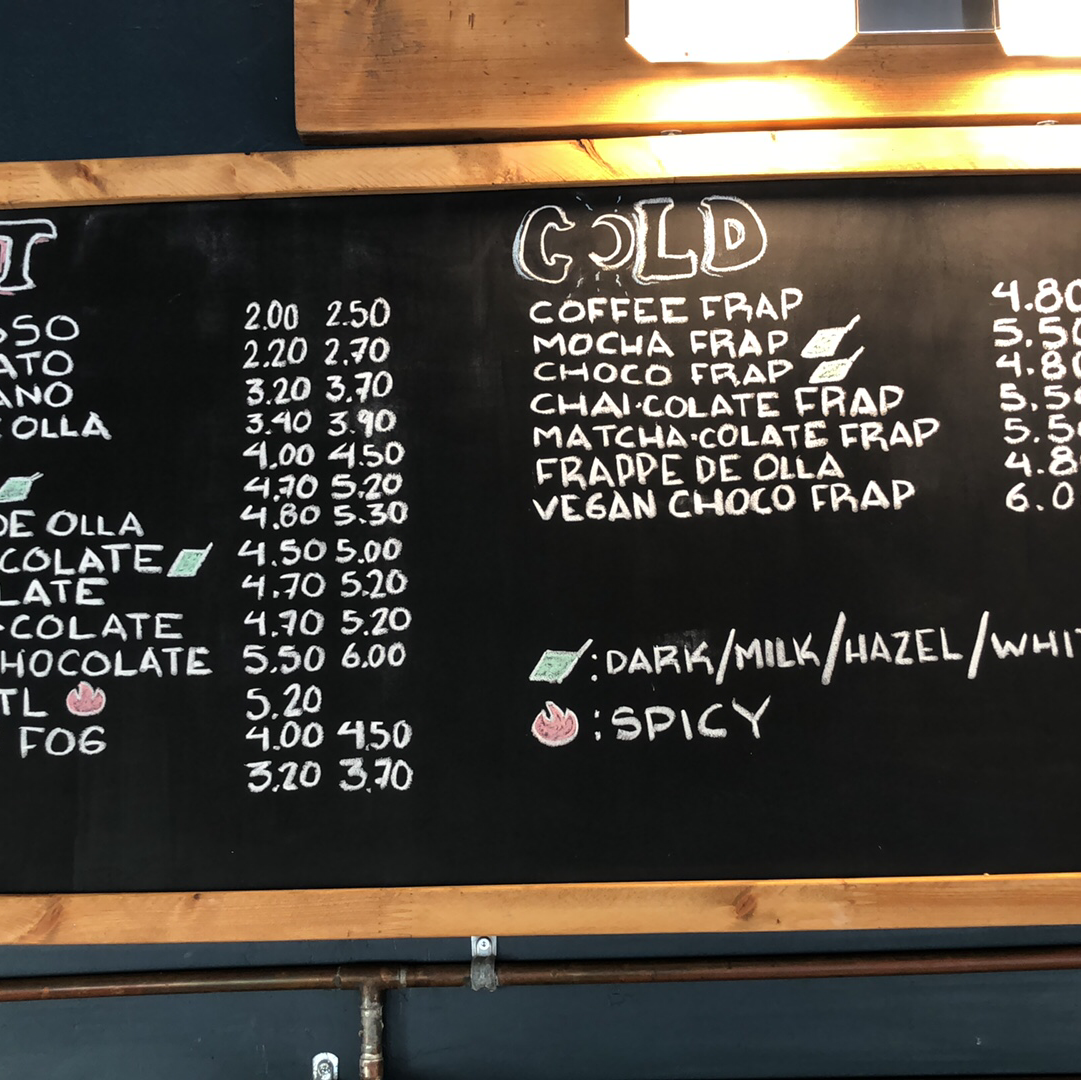 T
SSO 2.00 2.50
ATO 2.20 2.70
ANO 3.20 3.70
E OLLA 3.40 3.90
4.00 4.50
4.70 5.20
DE OLLA 4.80 5.30
COLATE 4.50 5.00
LATE 4.70 5.20
-COLATE 4.70 5.20
HOCOLATE 5.50 6.00
TL 5.20
FOG 4.00 4.50
3.20 3.70
COLD
COFFEE FRAP 4.80
MOCHA FRAP 5.50
CHOCO FRAP 4.80
CHAI·COLATE FRAP 5.50
MATCHA·COLATE FRAP 5.50
FRAPPE DE OLLA 4.8
VEGAN CHOCO FRAP 6.0
:DARK/MILK/HAZEL/WHIT
:SPICY